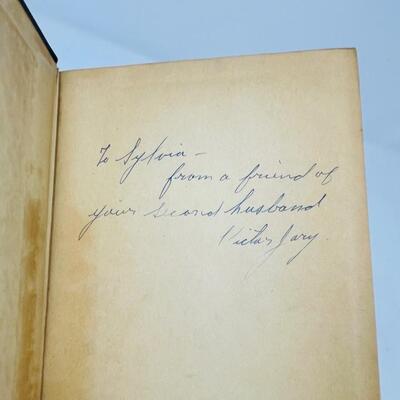 To Sylvia —
from a friend of
your second husband
Victor Jory.